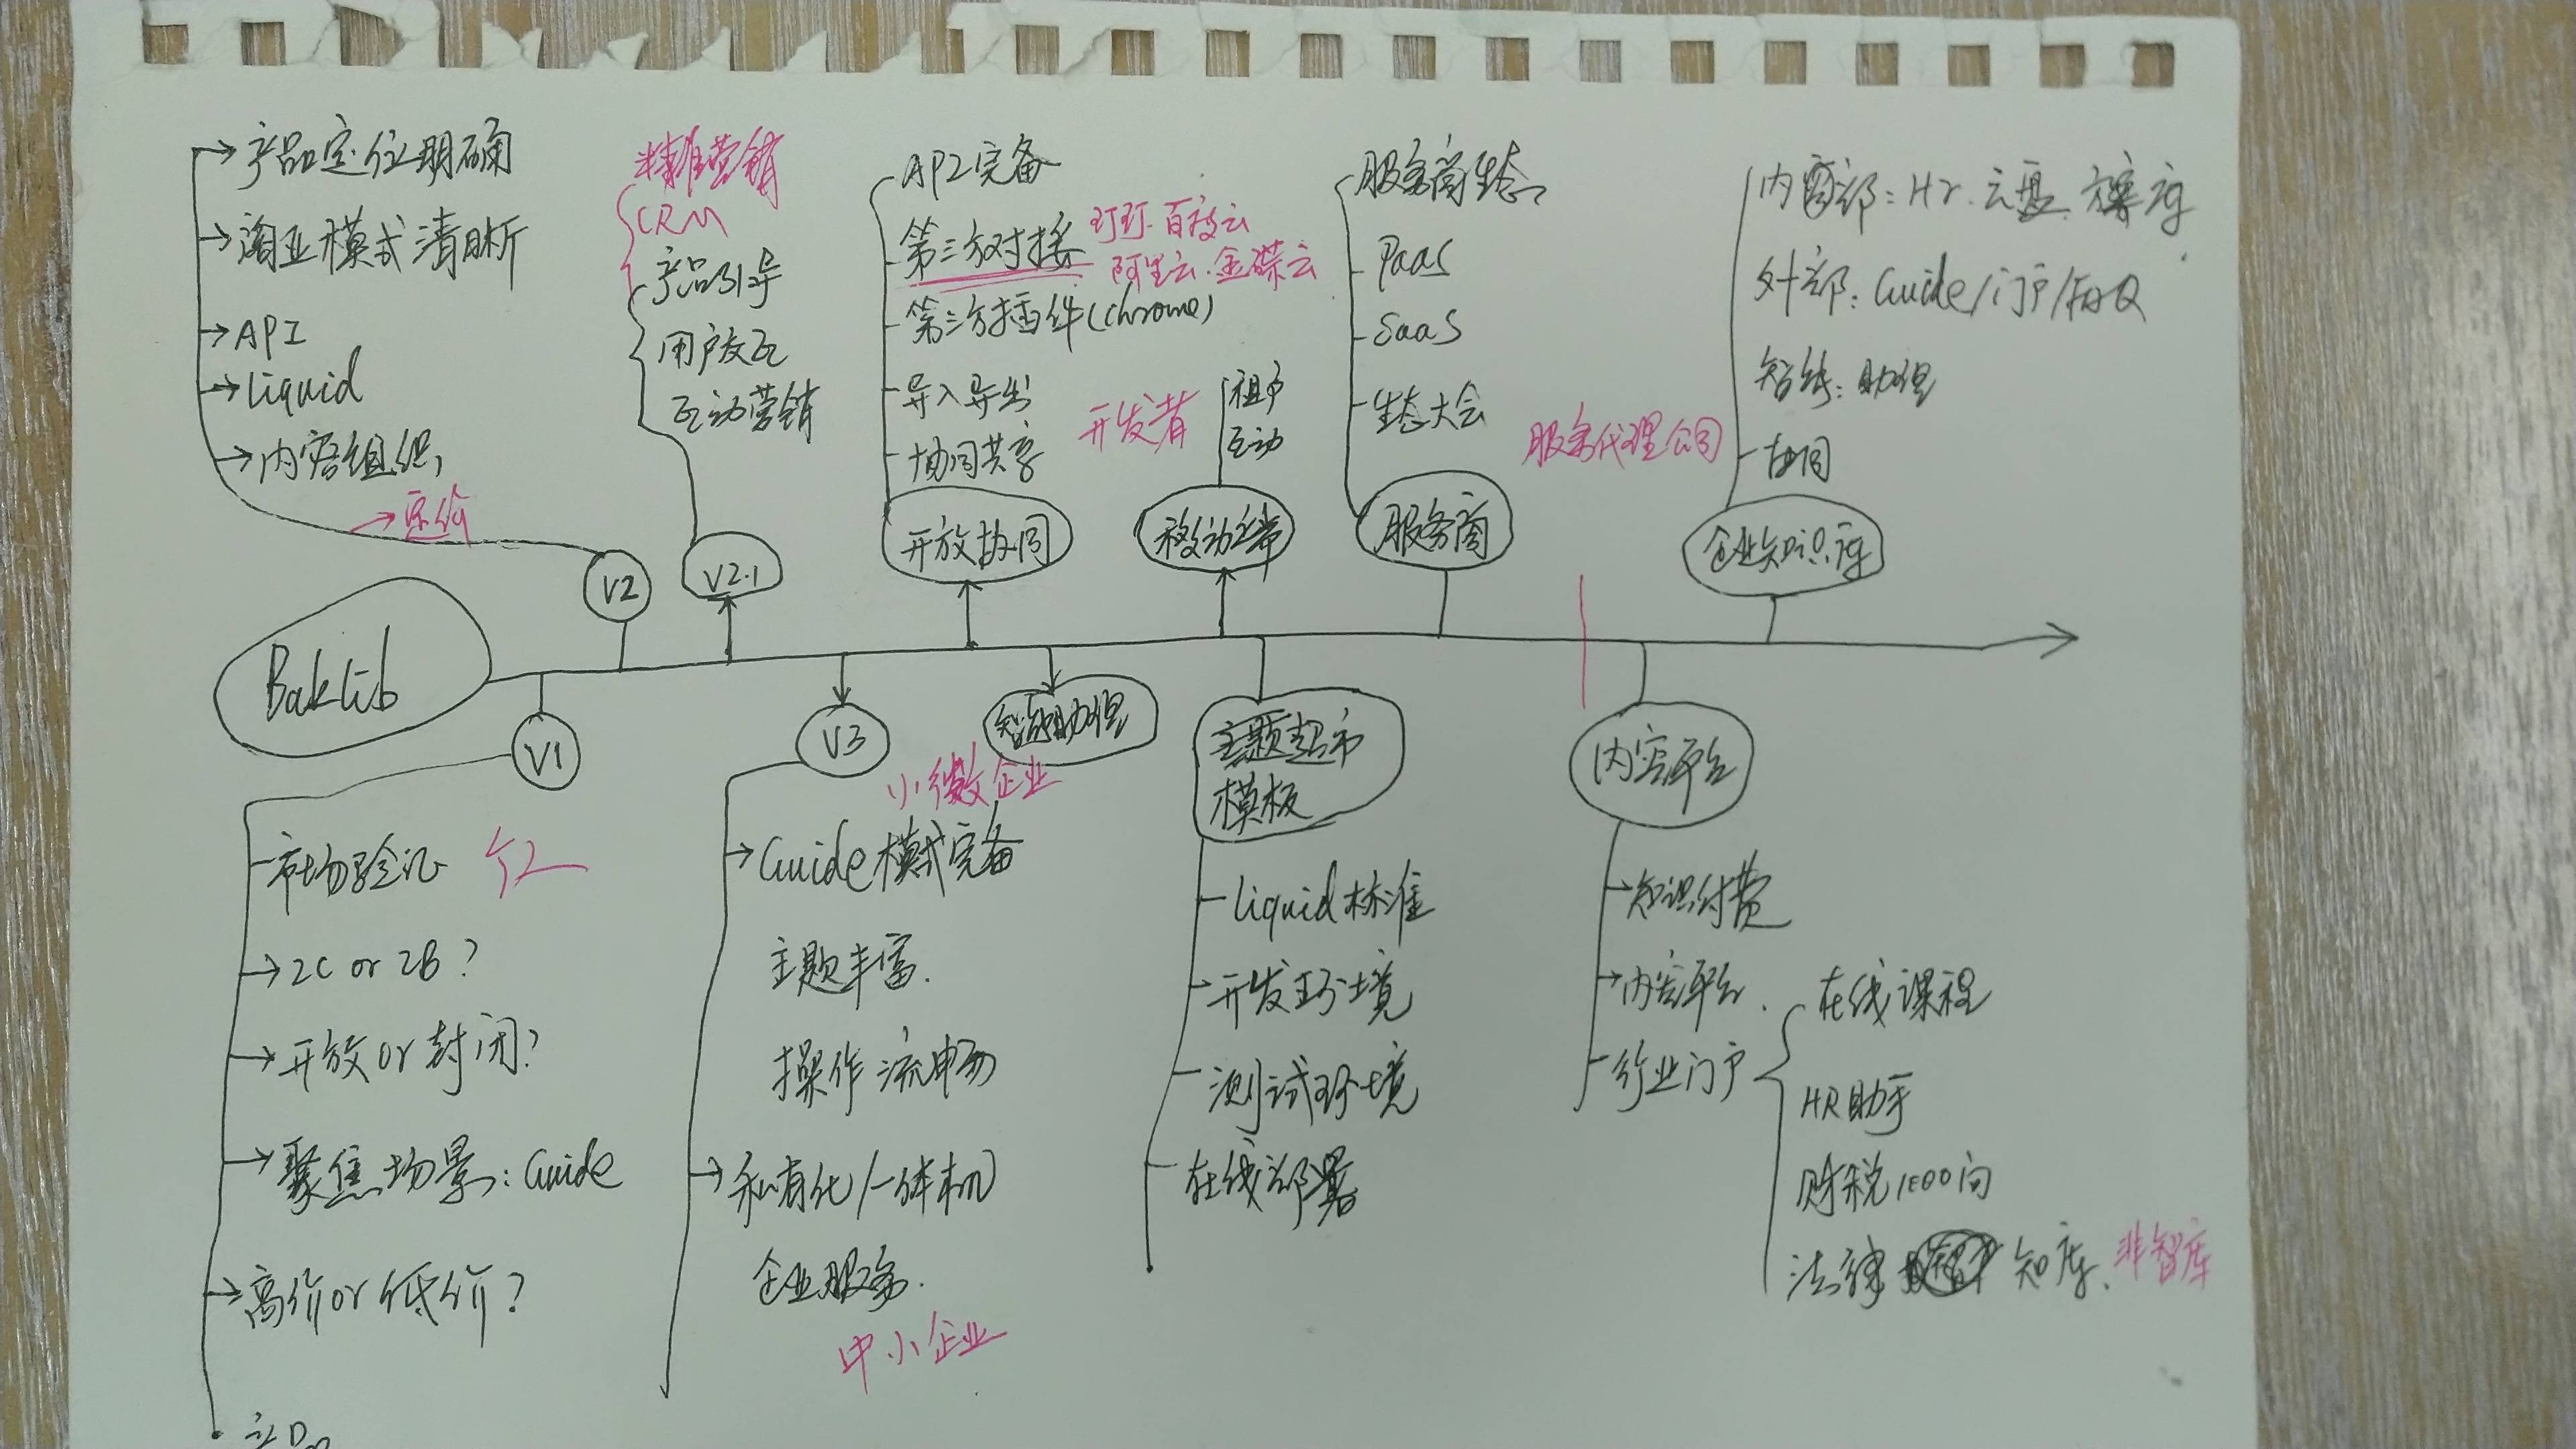 产品定位明确
商业模式清晰
API
Liquid
内容组织
定价
精准营销
CRM
产品引导
用户交互
互动营销
API完备
第三方对接
钉钉.百度云
阿里云.金蝶云
第三方插件(chrome)
导入导出
协同共享
开发者
租户
互动
服务商生态
PaaS
SaaS
生态大会
服务代理公司
内部: Hr.云盘.档案库
外部: Guide/门户/FAQ
智能: 助理
协同
V2
V2.1
开放协同
移动端
服务商
企业知识库
Baklib
V1
V3
智能助理
主题超市
模板
内容平台
市场验证
个人
2C or 2B?
开放or封闭?
聚焦场景: Guide
高价or低价?
小微企业
Guide模式完备
主题丰富.
操作流畅
私有化/一体机
企业服务.
中小企业
liquid标准
开发环境
测试环境
在线部署
知识付费
内容平台.
行业门户
在线课程
HR助手
财税1000问
法律 知库.
非智库